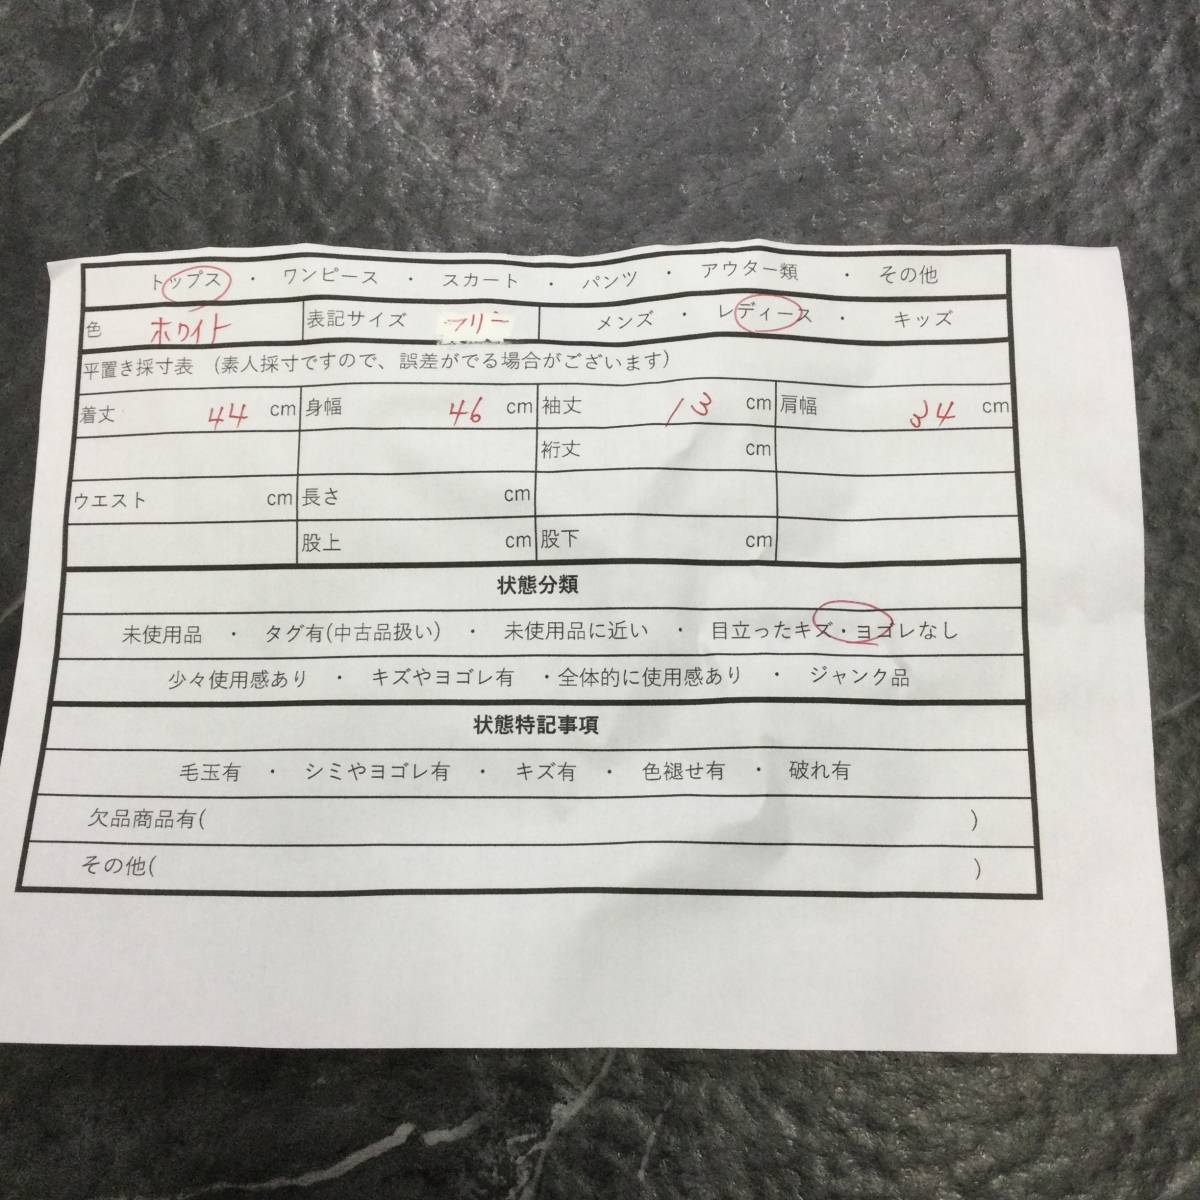 トップス ・ ワンピース ・ スカート ・ パンツ ・ アウター類 ・ その他
色 ホワイト 表記サイズ フリー メンズ ・ レディース ・ キッズ
平置き採寸表 (素人採寸ですので、誤差がでる場合がございます)
着丈 44 cm 身幅 46 cm 袖丈 13 cm 肩幅 34 cm
裄丈 cm
ウエスト cm 長さ cm
股上 cm 股下 cm
状態分類
未使用品 ・ タグ有(中古品扱い) ・ 未使用品に近い ・ 目立ったキズ・ヨゴレなし
少々使用感あり ・ キズやヨゴレ有 ・全体的に使用感あり ・ ジャンク品
状態特記事項
毛玉有 ・ シミやヨゴレ有 ・ キズ有 ・ 色褪せ有 ・ 破れ有
欠品商品有( )
その他( )